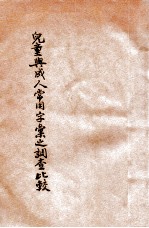 兒童與成人常用字彙之調查比較